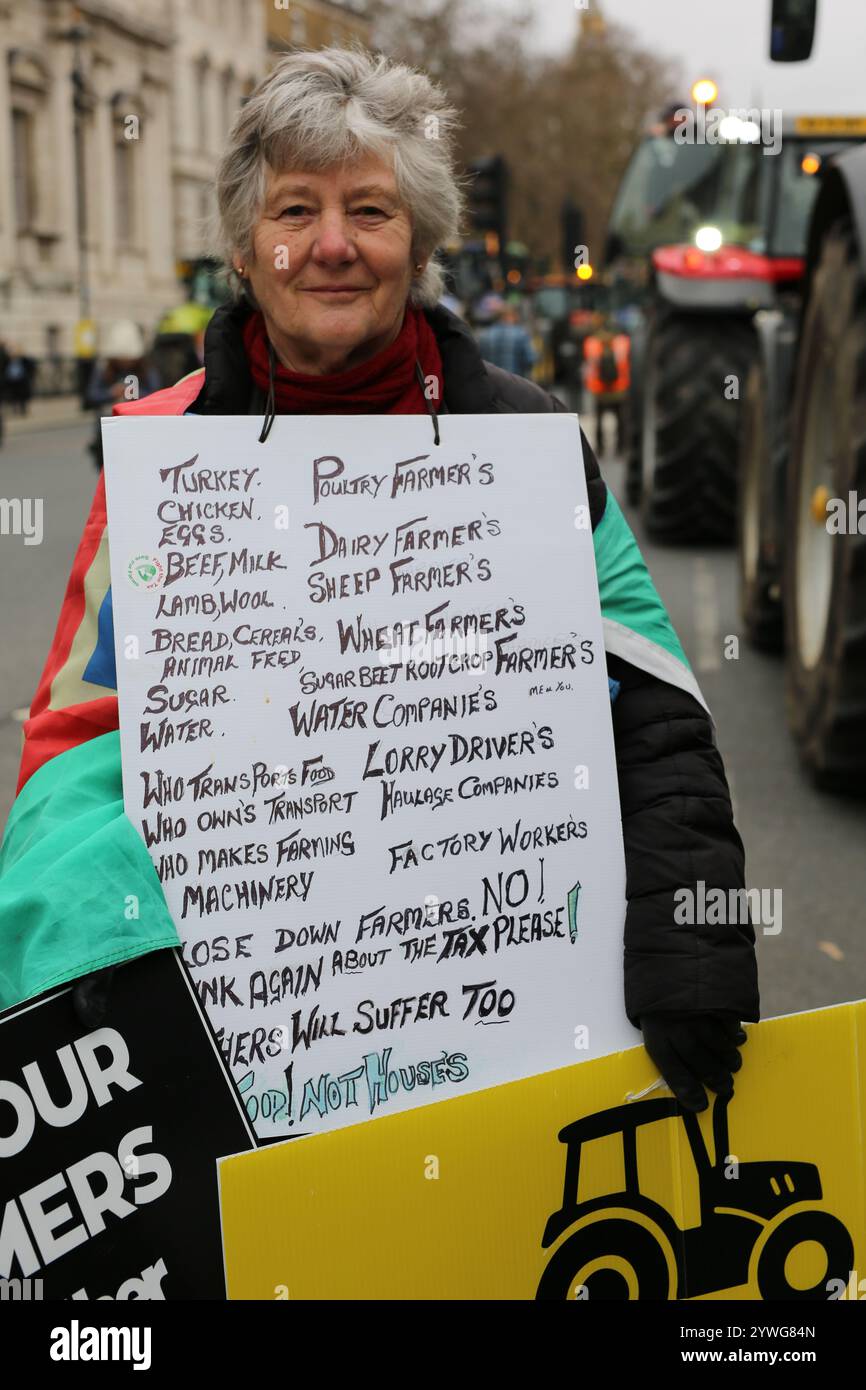 TURKEY. POULTRY FARMER'S
CHICKEN.
EGGS.
BEEF, MILK DAIRY FARMER'S
LAMB, WOOL. SHEEP FARMER'S
BREAD, CEREAL'S. WHEAT FARMER'S
ANIMAL FEED,
SUGAR. SUGAR BEET ROOT CROP FARMER'S
MEN YOU.
WATER. WATER COMPANIE'S
WHO TRANSPORTS FOOD LORRY DRIVER'S
WHO OWN'S TRANSPORT HAULAGE COMPANIES
WHO MAKES FARMING FACTORY WORKER'S
MACHINERY
LOSE DOWN FARMERS. NO!
NK AGAIN ABOUT THE TAX PLEASE!
HERS WILL SUFFER TOO
FOOD! NOT HOUSE'S
OUR
MERS
her
alamy
Image ID: 2YWG84N
www.alamy.com